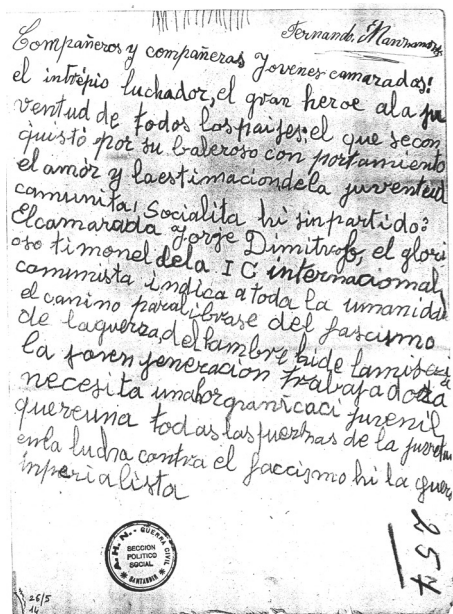 Fernando Manzano
Compañeros y compañeras Jovenes camarados!
el intrépio luchador, el gran heroe ala ju
ventud de todos los paises: el que secon
quistó por su baleroso con portamiento
el amór y laestimaciondela juventud
comunita, Socialita hi sinpartido:
Elcamarada Jorje Dimitrofo, el glori
oso timonel dela I C internacional,
comunista indica a toda la umanida
el camino paralibrase del fascismo
de laguerra, del hambre hide lamiseria
la joven jeneracion trabajadora
necesita unahorganicaci juvenil
quereuna todas lasfuerhas de la juventu
enla lucha contra el faccismo hi la guerra
inperialista
257
A.H.N. - GUERRA CIVIL
SECCION
POLITICO
SOCIAL
SANTANDER
26/5
14